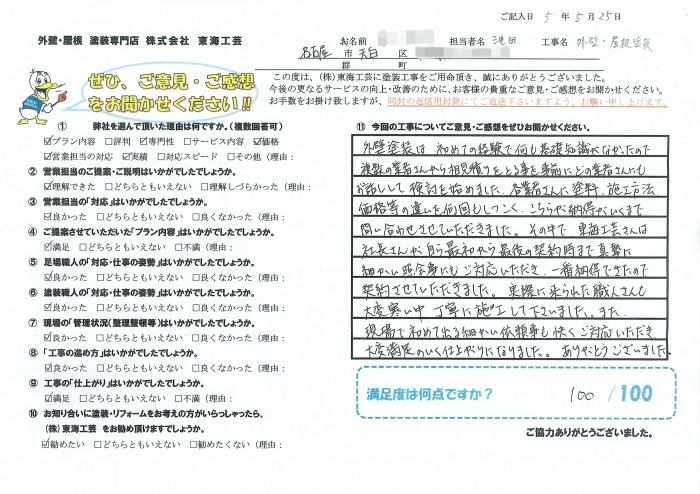 ご記入日 5 年 5 月 25 日
外壁・屋根 塗装専門店 株式会社 東海工芸
お名前 担当者名 池田 工事名 外壁・屋根塗装
名古屋 市 天白 区
郡 町
ぜひ、ご意見・ご感想
をお聞かせください!!
この度は、(株)東海工芸に塗装工事をご用命頂き、誠にありがとうございました。
今後の更なるサービスの向上・改善のために、お客様の貴重なご意見・ご感想をお聞かせください。
お手数をお掛け致しますが、同封の返信用封筒にてご返送下さいますよう、お願い申し上げます。
① 弊社を選んで頂いた理由は何ですか。(複数回答可)
☑プラン内容 □評判 ☑専門性 □サービス内容 ☑価格
☑営業担当の対応 ☑実績 □対応スピード □その他(理由:
② 営業担当のご提案・ご説明はいかがでしたでしょうか。
☑理解できた □どちらともいえない □理解しづらかった(理由:
③ 営業担当の「対応」はいかがでしたでしょうか。
☑良かった □どちらともいえない □良くなかった(理由:
④ ご提案させていただいた「プラン内容」はいかがでしたでしょうか。
☑満足 □どちらともいえない □不満(理由:
⑤ 足場職人の「対応・仕事の姿勢」はいかがでしたでしょうか。
☑良かった □どちらともいえない □良くなかった(理由:
⑥ 塗装職人の「対応・仕事の姿勢」はいかがでしたでしょうか。
☑良かった □どちらともいえない □良くなかった(理由:
⑦ 現場の「管理状況(整理整頓等)はいかがでしたでしょうか。
☑良かった □どちらともいえない □良くなかった(理由:
⑧ 「工事の進め方」はいかがでしたでしょうか。
☑良かった □どちらともいえない □良くなかった(理由:
⑨ 工事の「仕上がり」はいかがでしたでしょうか。
☑満足 □どちらともいえない □不満(理由:
⑩ お知り合いに塗装・リフォームをお考えの方がいらっしゃったら、
(株)東海工芸 をお勧め頂けますでしょうか。
☑勧めたい □どちらともいえない □勧めたくない(理由:
⑪ 今回の工事についてご意見・ご感想をぜひお聞かせください。
外壁塗装は 初めての経験で何も基礎知識がなかたので
複数の業者さんから相見積りをとる事を事前にどの業者さんにも
お話しして 検討を始めました。各業者さんに塗料、施工方法
価格等の違いを何回もしつこく、こちらが納得がいくまで
問い合わせさせていただきました。その中で 東海工芸さんは
社長さんが自ら最初から最後の契約時まで真摯に
細かい照会事にもご対応いただき、一番納得できたので
契約させていただきました。実際に来られた職人さんも
大変寒い中 丁寧に施工して下さいました。また、
現場で初めて出る細かい依頼事も快くご対応いただき、
大変満足のいく仕上がりになりました。ありがとうございました。
満足度は何点ですか? 100 /100
ご協力ありがとうございました。